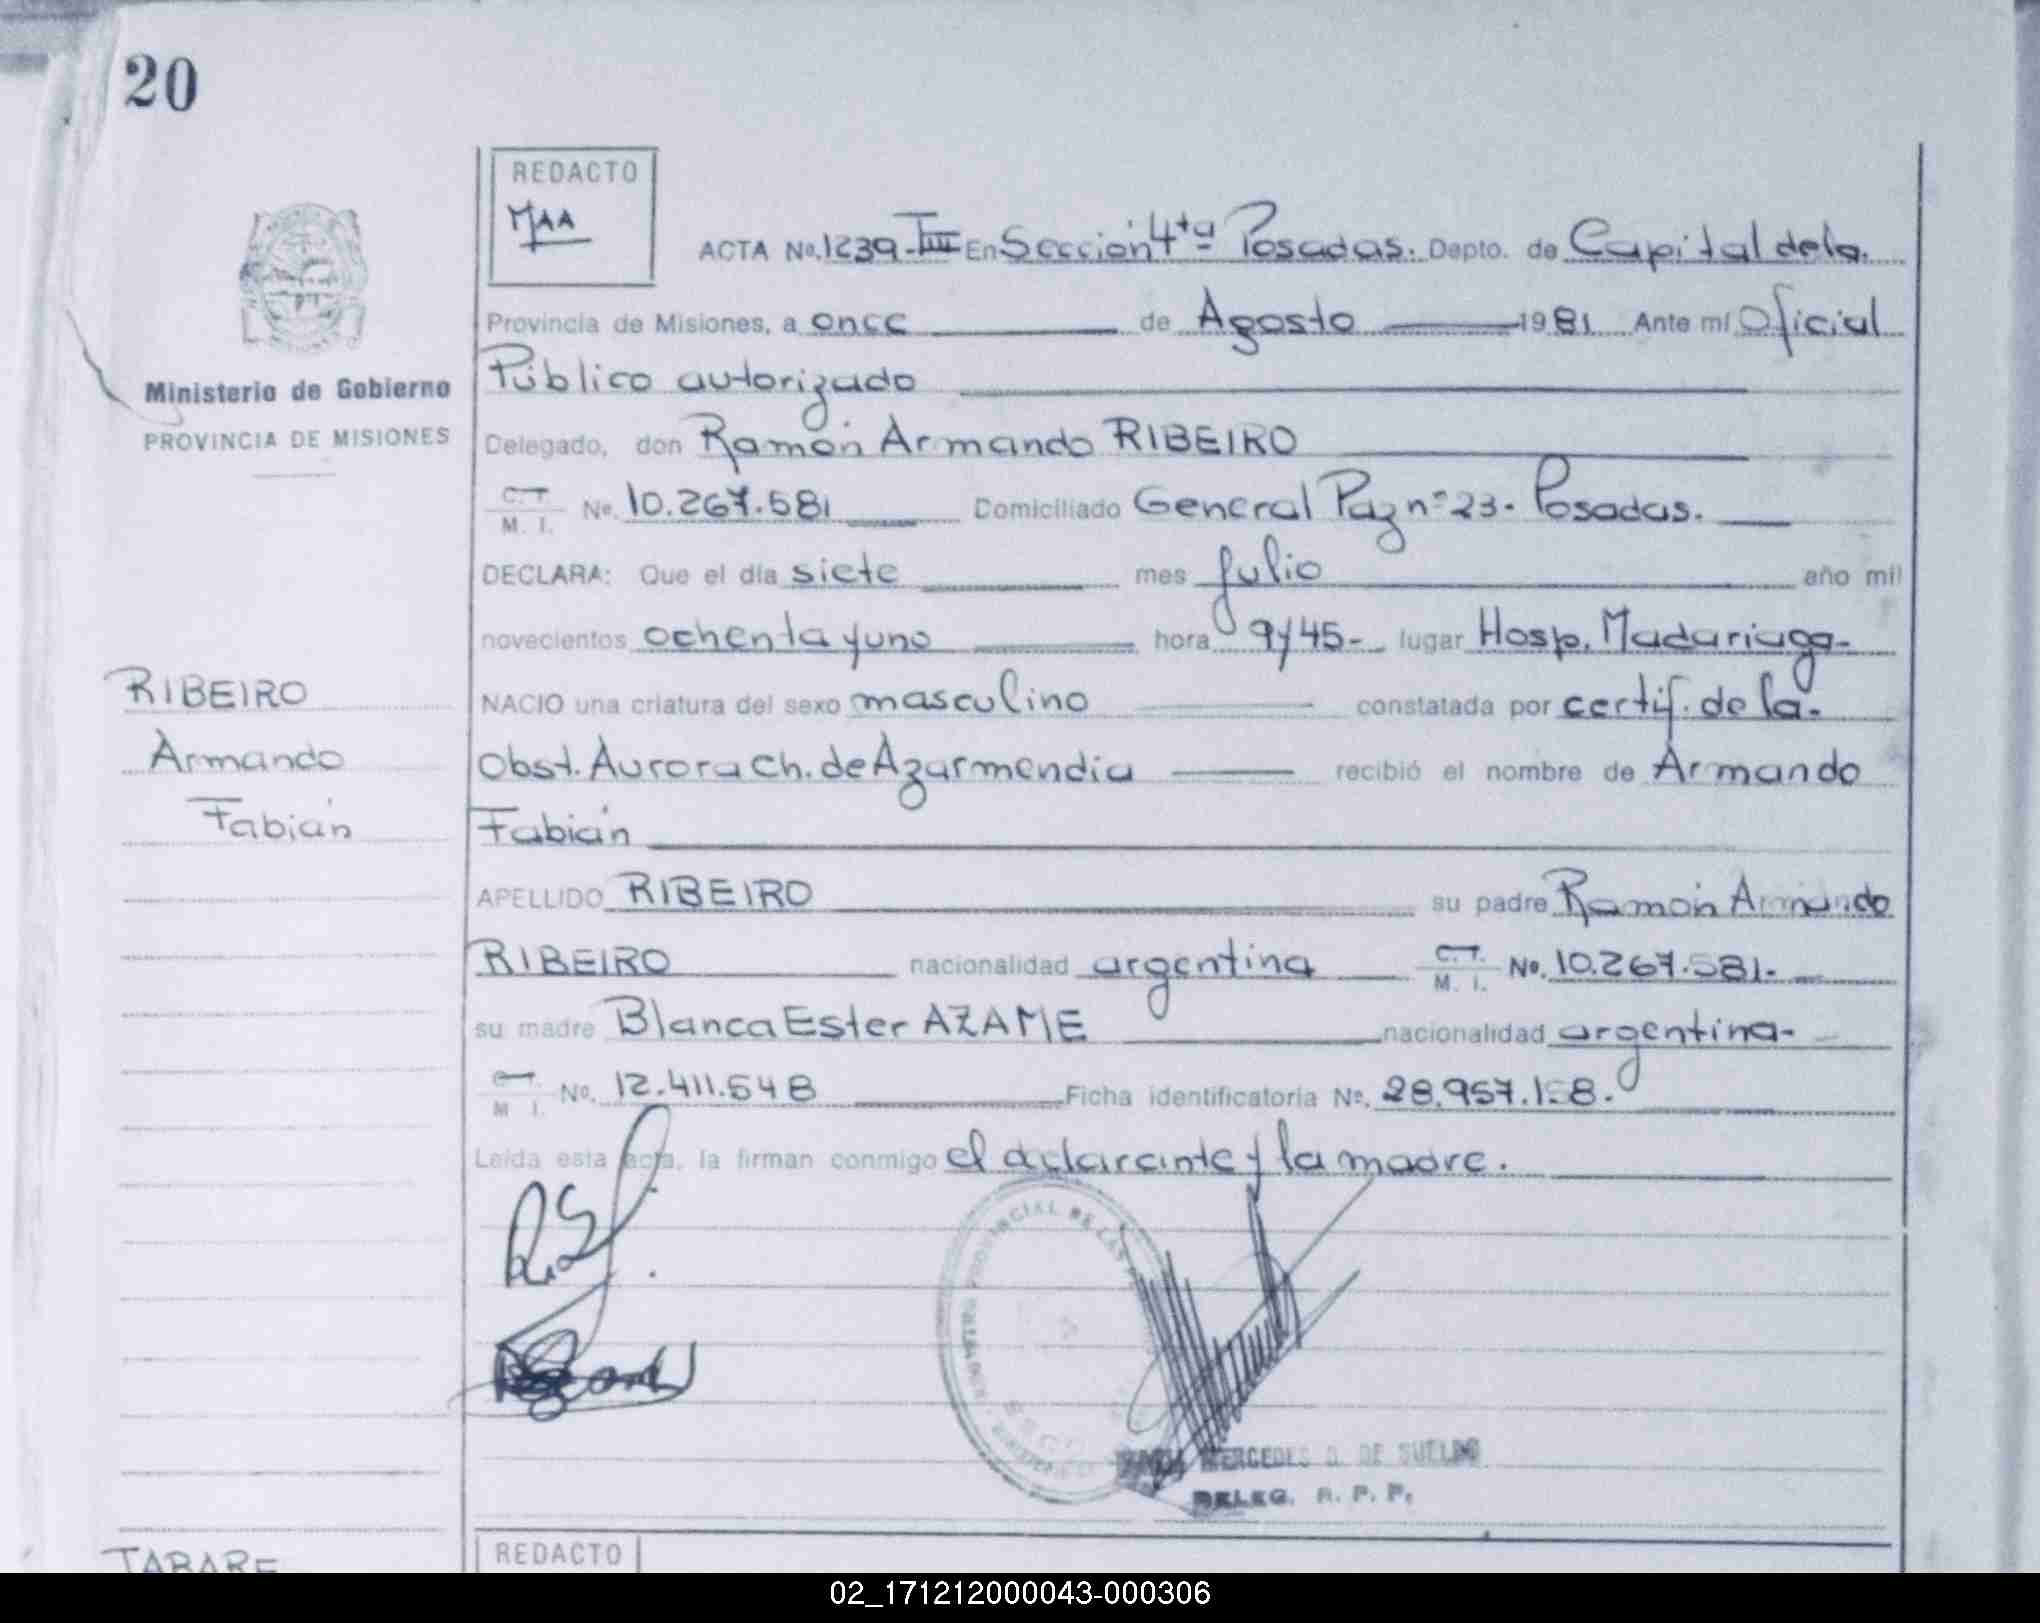 20
REDACTO
MAA
ACTA No. 1239-III En Sección 4ta Posadas. Depto. de Capital de la.
Provincia de Misiones, a once de Agosto 1981 Ante mí Oficial
Público autorizado
Ministerio de Gobierno
PROVINCIA DE MISIONES
Delegado, don Ramón Armando RIBEIRO
C.T. M. I. No. 10.267.581 Domiciliado General Paz nº 23. Posadas.
DECLARA: Que el día siete mes julio año mil
novecientos ochenta y uno hora 9y45- lugar Hosp. Madariaga-
RIBEIRO
Armando
Fabián
NACIO una criatura del sexo masculino constatada por certif. de la.
Obst. Aurora Ch. de Azarmendia recibió el nombre de Armando
Fabián
APELLIDO RIBEIRO su padre Ramón Armando
RIBEIRO nacionalidad argentina C.T. M. I. No. 10.267.581.
su madre Blanca Ester AZAME nacionalidad argentina-
M I. No. 12.411.548 Ficha identificatoria No. 28.957.158.
Leída esta acta, la firman conmigo el declarante y la madre.
PROVINCIAL DE LAS
MERCEDES D. DE SUELDO
DELEG. R. P. P.
TABARE
REDACTO
02_171212000043-000306